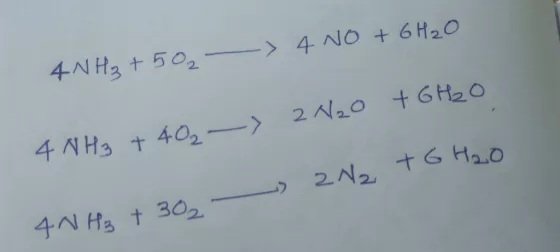 4NH₃ + 5O₂ ⟶ 4 NO + 6H₂O
4 NH₃ + 4O₂ ⟶ 2 N₂O + 6H₂O.
4NH₃ + 3O₂ ⟶ 2N₂ + 6 H₂O